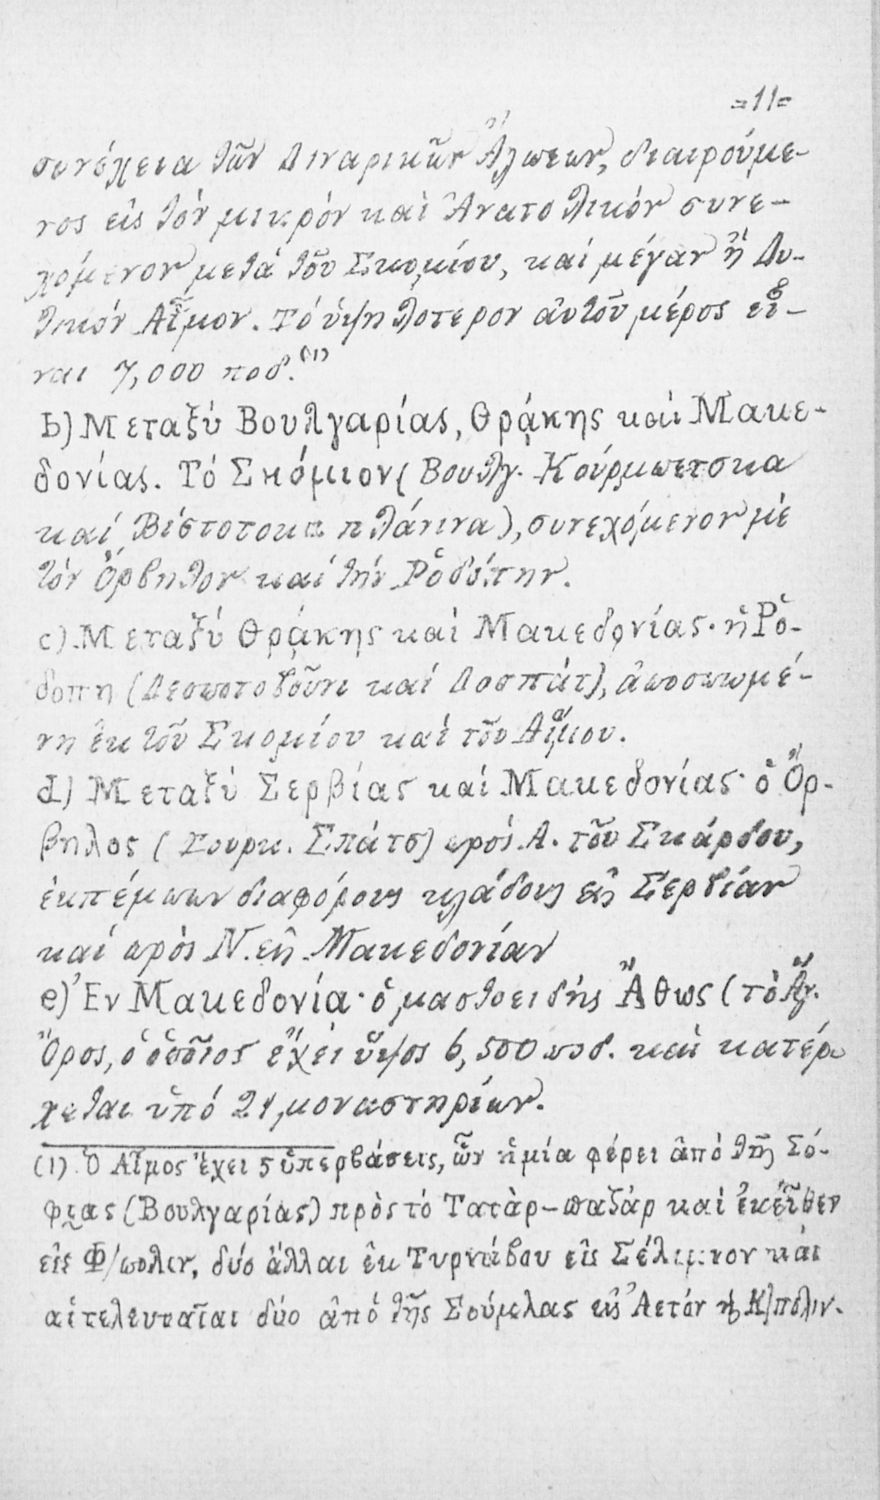 =11=
συνέχεια τῶν Διναρικῶν Ἄλπεων, διαιρούμε-
νος εἰς τὸν μικρὸν καὶ Ἀνατολικόν συνε-
χόμενον μετὰ τοῦ Σκομίου, καί μέγαν ἢ Δυ-
τικόν Αἷμον. Τό ὑψηλότερον αὐτοῦ μέρος εἶ-
ναι 7,000 ποδ.(1)
b) Μεταξύ Βουλγαρίας, Θρᾴκης καὶ Μακε-
δονίας. Τό Σκόμιον (Βουλγ. Κούρμπετσκα
καί Βίστοτοκα πλάνινα), συνεχόμενον μὲ
τὸν Ὄρβηλον καί τήν Ῥοδόπην.
c) Μεταξύ Θρᾴκης καὶ Μακεδονίας· ἡ Ῥο-
δόπη (Δεσποτοβοῦνι καί Δοσπάτ), ἀποσπωμέ-
νη ἐκ τοῦ Σκομίου καὶ τοῦ Αἵμου.
d) Μεταξύ Σερβίας καί Μακεδονίας· ὁ Ὄρ-
βηλος (Τουρκ. Σπάτσ) πρὸς Α. τοῦ Σκάρδου,
ἐκπέμπων διαφόρους κλάδους εἰς Σερβίαν
καί πρὸς Ν. εἰς Μακεδονίαν
e) Ἐν Μακεδονίᾳ· ὁ μαστοειδής Ἄθως (τὸ Ἅγ.
Ὄρος, ὁ ὁποῖος ἔχει ὕψος 6,500 ποδ. καὶ κατέρ
χεται ὑπό 21 μοναστηρίων.
(1) Ὁ Αἷμος ἔχει 5 ὑπερβάσεις, ὧν ἡ μία φέρει ἀπὸ τῆς Σό-
φιας (Βουλγαρίας) πρὸς τὸ Τατὰρ-παζὰρ καὶ ἐκεῖθεν
εἰς Φ/πολιν, δύο ἄλλαι ἐκ Τυρνάβου εἰς Σέλιμνον καὶ
αἱ τελευταῖαι δύο ἀπὸ τῆς Σούμλας εἰς Ἀετόν ἢ Κ/πολιν.